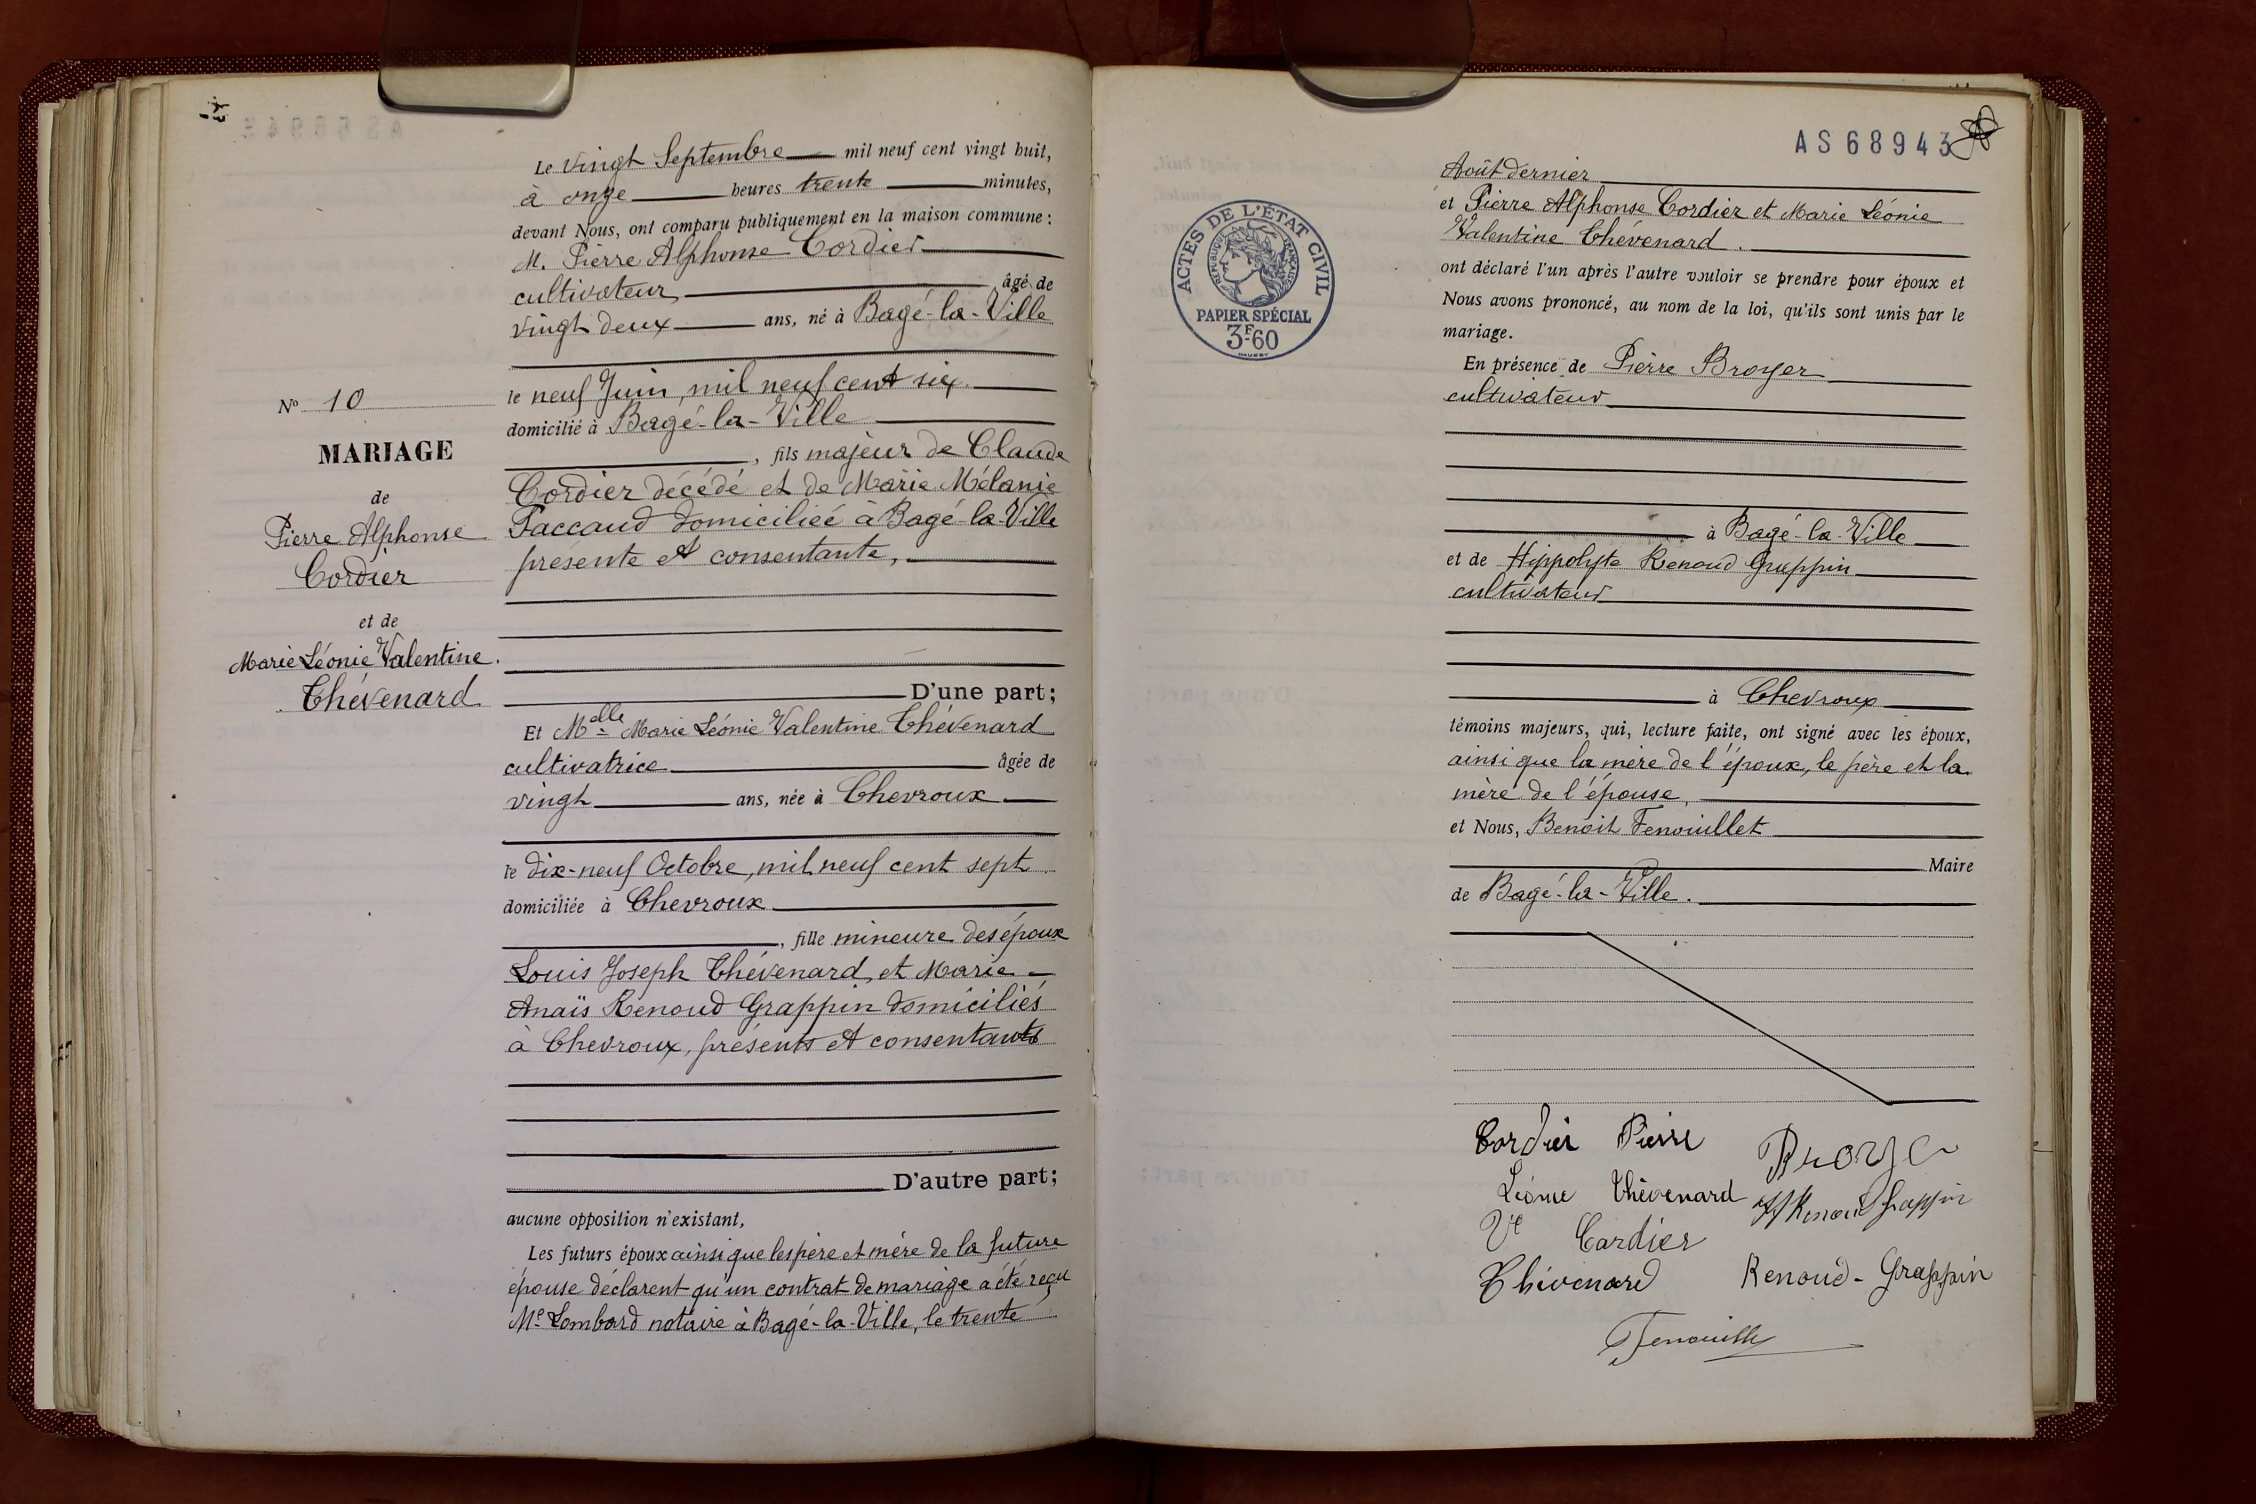 Le vingt Septembre mil neuf cent vingt huit,
à onze heures trente minutes,
devant Nous, ont comparu publiquement en la maison commune :
M. Pierre Alphonse Cordier
cultivateur, âgé de
vingt deux ans, né à Bagé-la-Ville
le neuf Juin, mil neuf cent six.
domicilié à Bagé-la-Ville
, fils majeur de Claude
Cordier décédé et de Marie Mélanie
Paccaud domiciliée à Bagé-la-Ville
présente et consentante,
D'une part;
Et Melle Marie Léonie Valentine Thévenard
cultivatrice âgée de
vingt ans, née à Chevroux
le dix-neuf Octobre, mil neuf cent sept.
domiciliée à Chevroux
, fille mineure des époux
Louis Joseph Thévenard, et Marie
Anaïs Renoud Grappin domiciliés
à Chevroux, présents et consentants
D'autre part;
aucune opposition n'existant,
Les futurs époux ainsi que les père et mére de la future
épouse déclarent qu'un contrat de mariage a été reçu
Me Lombard notaire à Bagé-la-Ville, le trente
No 10
MARIAGE
de
Pierre Alphonse
Cordier
et de
Marie Léonie Valentine.
Thévenard
AS68943
Août dernier
et Pierre Alphonse Cordier et Marie Léonie
Valentine Thévenard.
ont déclaré l'un après l'autre vouloir se prendre pour époux et
Nous avons prononcé, au nom de la loi, qu'ils sont unis par le
mariage.
En présence de Pierre Broyer
cultivateur
à Bagé-la-Ville
et de Hippolyte Renoud Grappin
cultivateur
à Chevroux
témoins majeurs, qui, lecture faite, ont signé avec les époux,
ainsi que la mère de l'époux, le père et la
mère de l'épouse,
et Nous, Benoit Fenouillet
Maire
de Bagé-la-Ville.
ACTES DE L'ÉTAT CIVIL
RÉPUBLIQUE FRANÇAISE
PAPIER SPÉCIAL
3F60
Cordier Pierre
Broyer
Léonie Thévenard
H Renoud Grappin
Ve Cordier
Thévenard
Renoud-Grappin
Fenouillet